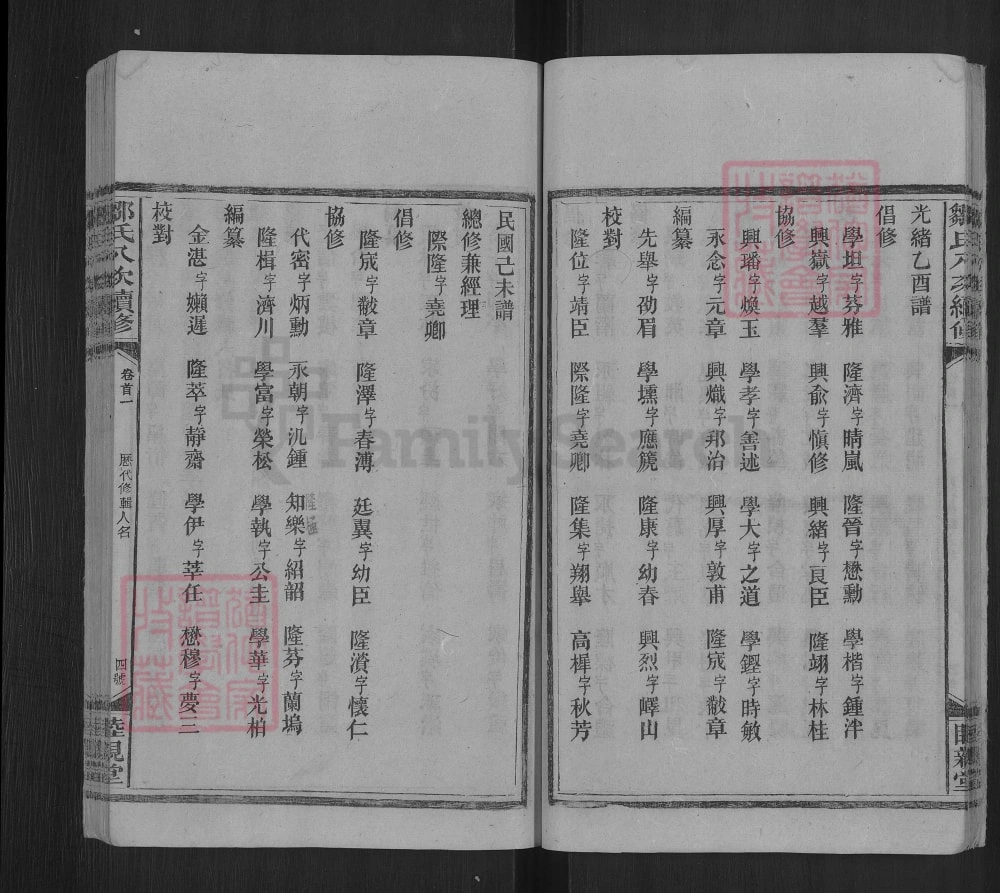 光緒乙酉譜
倡修
學坦字芬雅 隆濟字晴嵐 隆晉字懋勳 學楷字鍾泮
興嶽字越羣 興俞字愼修 興緒字良臣 隆翊字林桂
協修
興璠字煥玉 學孝字善述 學大字之道 學鏗字時敏
永念字元章 興熾字邦治 興厚字敦甫 隆宬字黻章
編纂
先舉字劭眉 學壎字應篪 隆康字幼春 興烈字嶧山
隆位字靖臣 際隆字堯卿 隆集字翔舉 高樨字秋芳
校對
民國己未譜
總修兼經理
際隆字堯卿
倡修
隆宬字黻章 隆澤字春溥 廷翼字幼臣 隆濱字懷仁
協修
代密字炳勳 永朝字氿鍾 知樂字紹韶 隆芬字蘭塢
隆楫字濟川 學富字榮松 學執字公圭 學華字光柏
編纂
金湛字嬾遲 隆萃字靜齋 學伊字莘任 懋穆字夢三
校對
鄒氏八次續修
卷首一
歷代修輯人名
四號
睦親堂
FamilySearch